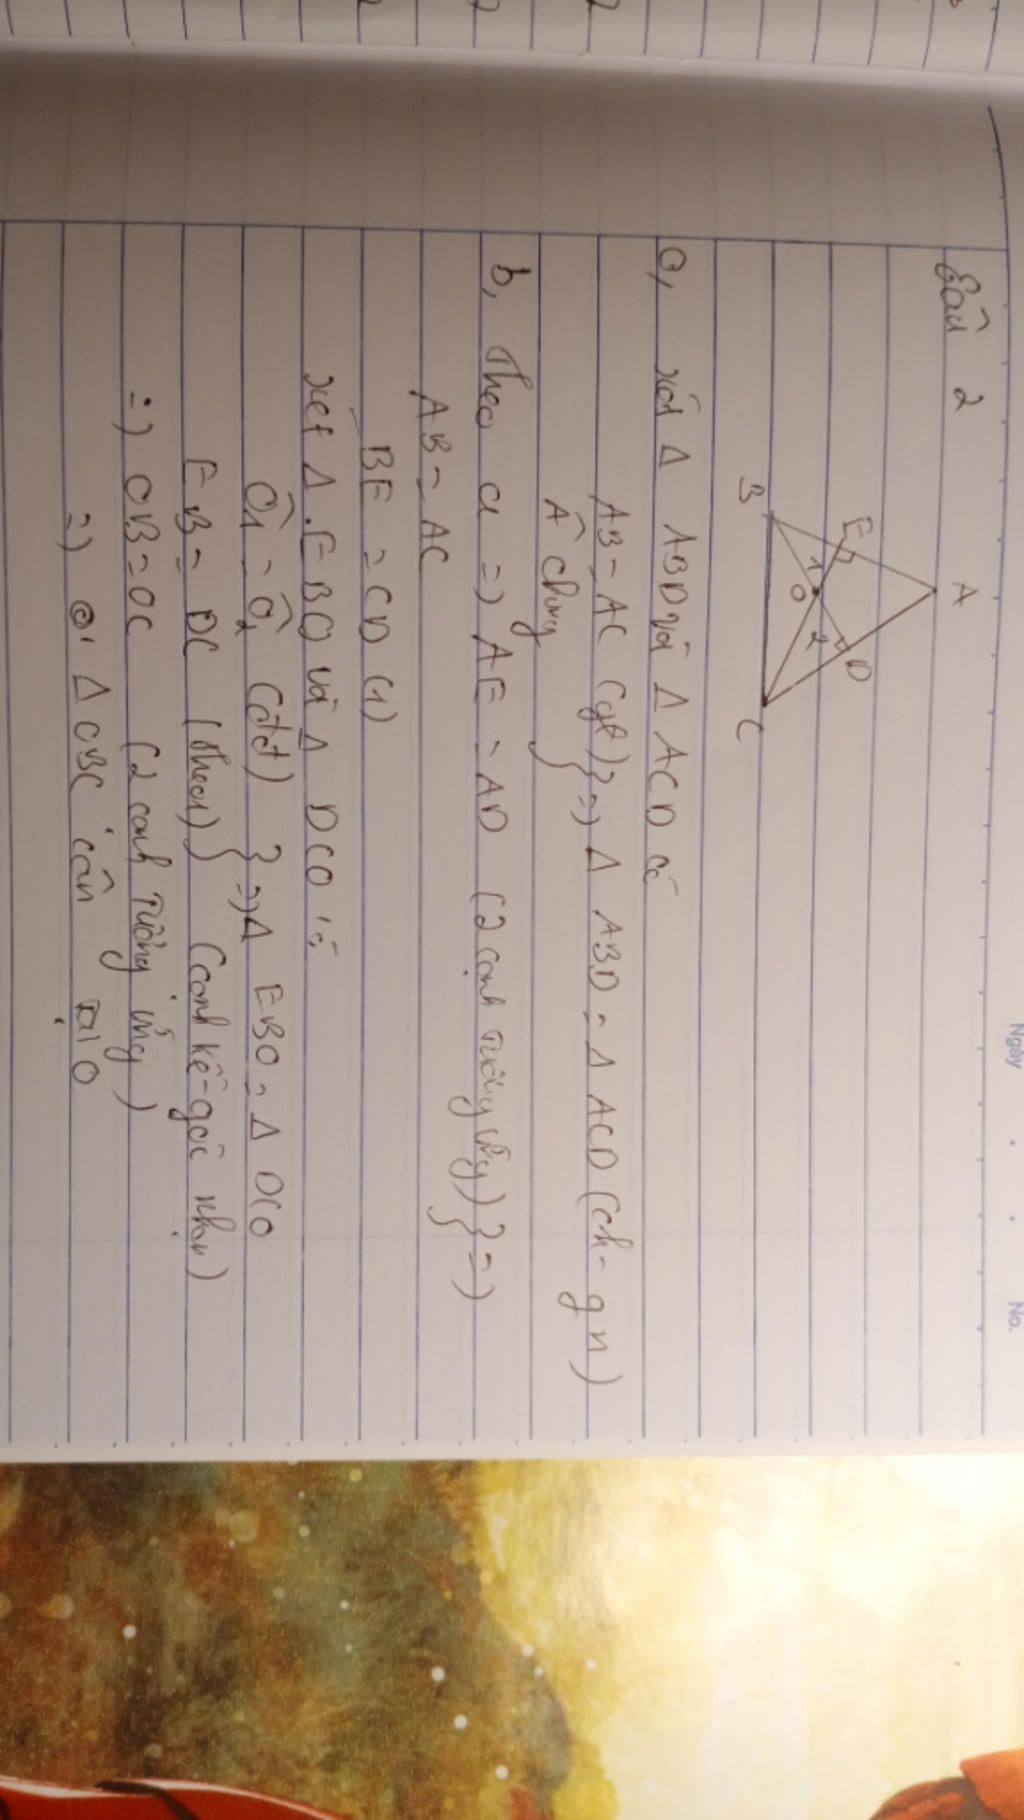 Ngày
No.
Câu 2
A
E
D
1
2
O
B
C
a, xét Δ ABD và Δ ACD có
AB = AC (gt) } => Δ ABD = Δ ACD (ch - gn)
Â chung
b, Theo a => AE = AD (2 cạnh tương ứng) } =>
AB = AC
BE = CD (1)
xét Δ EBO và Δ DCO có
Ô1 = Ô2 (đđ) } => Δ EBO = Δ DCO
EB = DC (theo 1) } (cạnh kề - góc nhọn)
=> OB = OC (2 cạnh tương ứng)
=> Δ OBC cân tại O